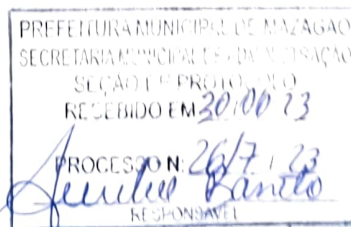 PREFEITURA MUNICIPAL DE MAZAGAO
SECRETARIA MUNICIPAL DE ADMINISTRAÇÃO
SEÇÃO DE PROTOCOLO
RECEBIDO EM 30/00 23
PROCESSO N: 26/7 / 23
RESPONSAVEL